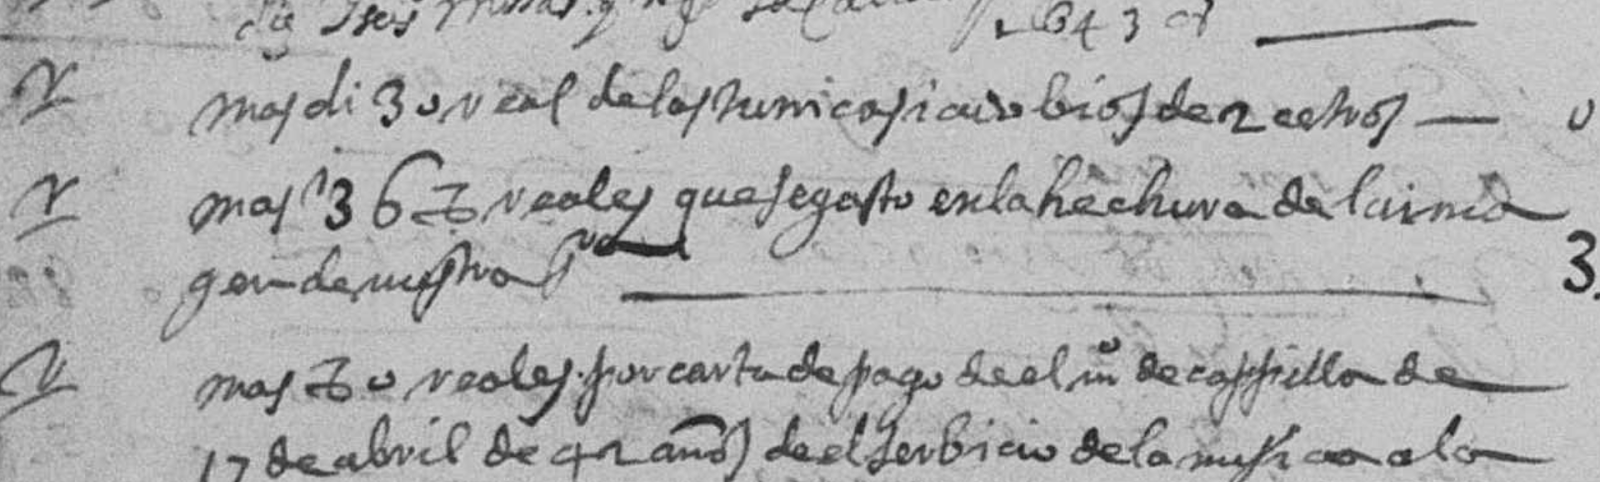 dia tres misas y 1643 a
mas di 30 real de las tunicas i cirobios de recetros — 0
mas 367 reales que se gasto en la hechura de la ima
gen de nuestra sra — 3
mas 70 reales por carta de pago de el mo de cappilla de
17 de abril de 42 años de el serbicio de la musica a la